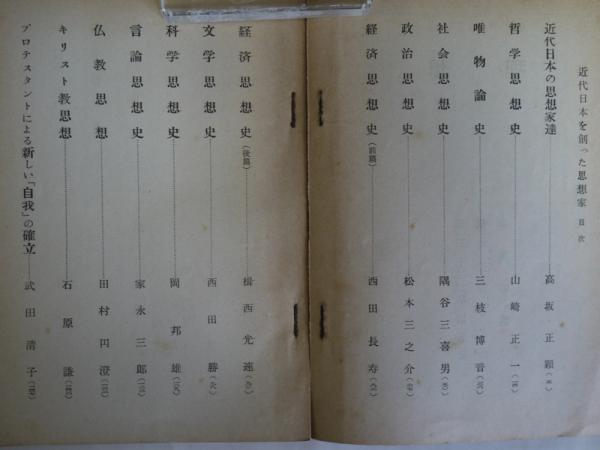 近代日本を創った思想家 目次
近代日本の思想家達 高坂正顕
哲学思想史 山崎正一
唯物論史 三枝博音
社会思想史 隅谷三喜男
政治思想史 松本三之介
経済思想史（前篇） 西田長寿
経済思想史（後篇） 楫西光速
文学思想史 西田勝
科学思想史 岡邦雄
言論思想史 家永三郎
仏教思想 田村円澄
キリスト教思想 石原謙
プロテスタントによる新しい「自我」の確立 武田清子